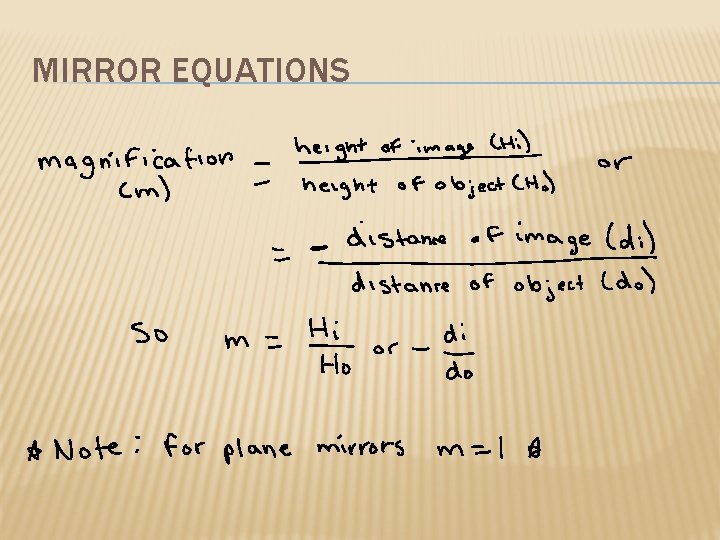 MIRROR EQUATIONS
magnification (m) = height of image (Hi) / height of object (Ho) or
= - distance of image (di) / distance of object (do)
So m = Hi / Ho or - di / do
* Note: for plane mirrors m = 1 *